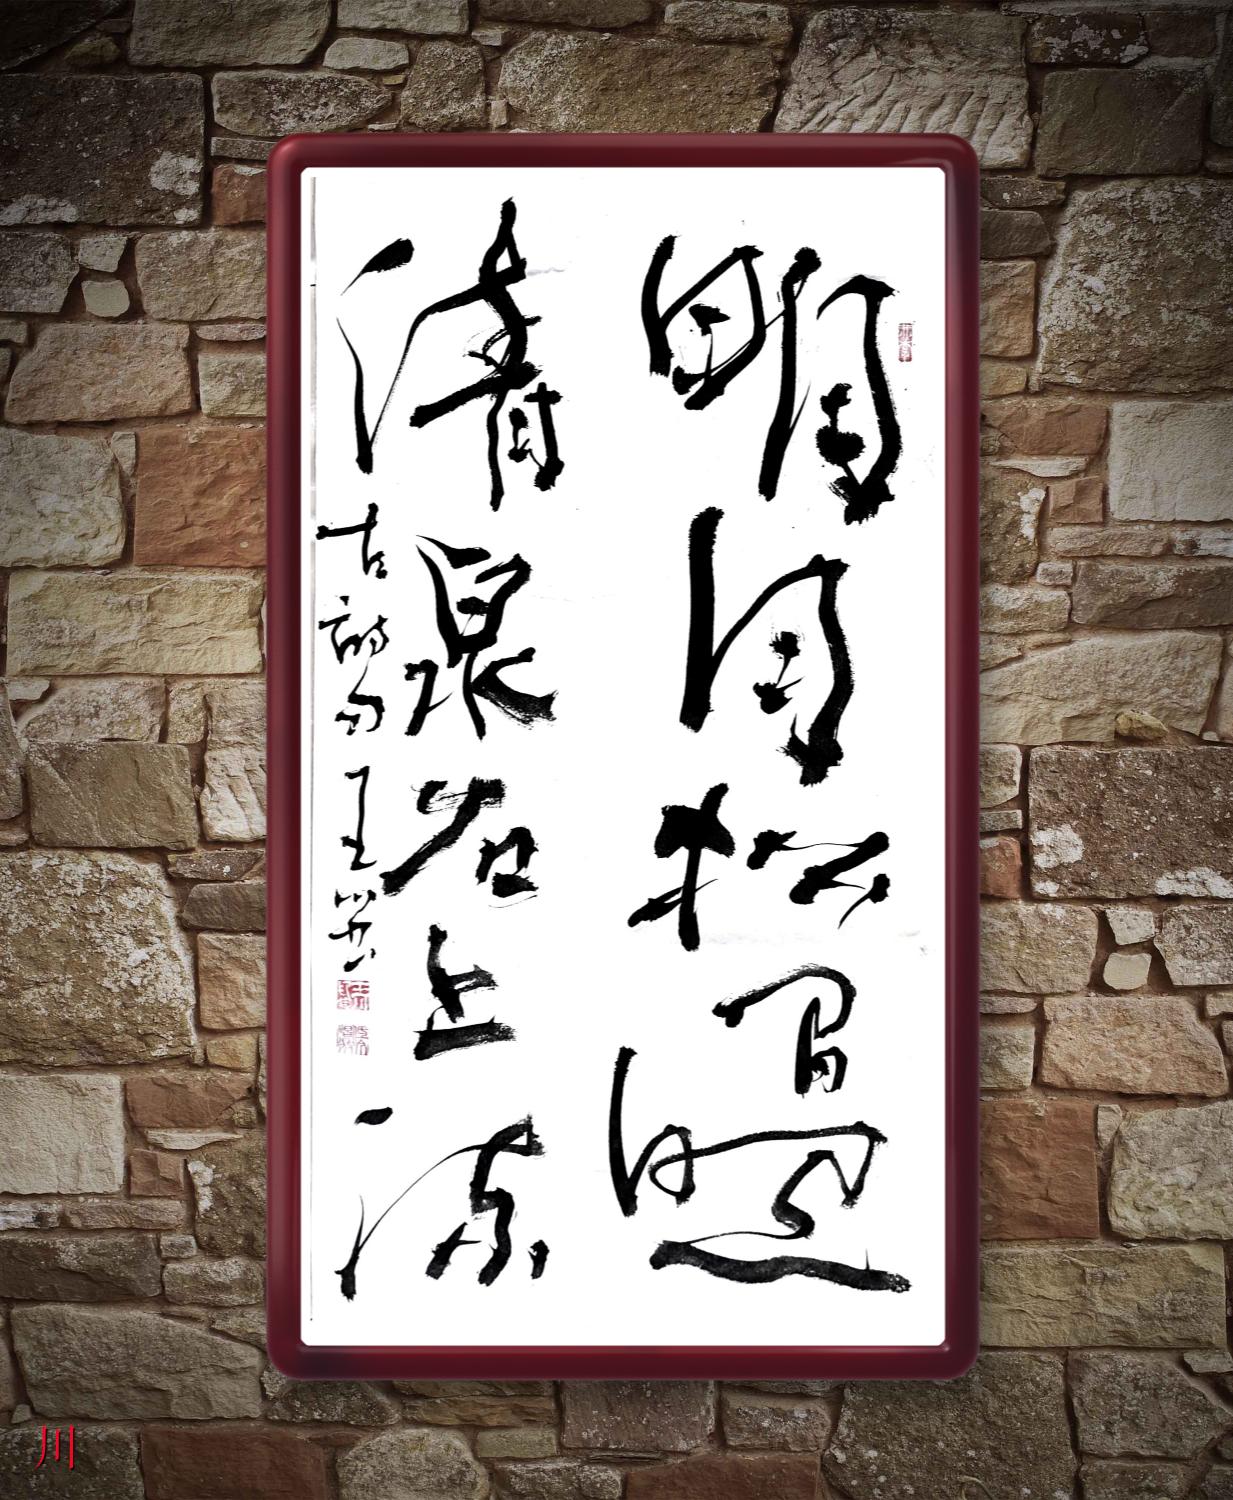 明月松间照
清泉石上流
古诗句 王
川